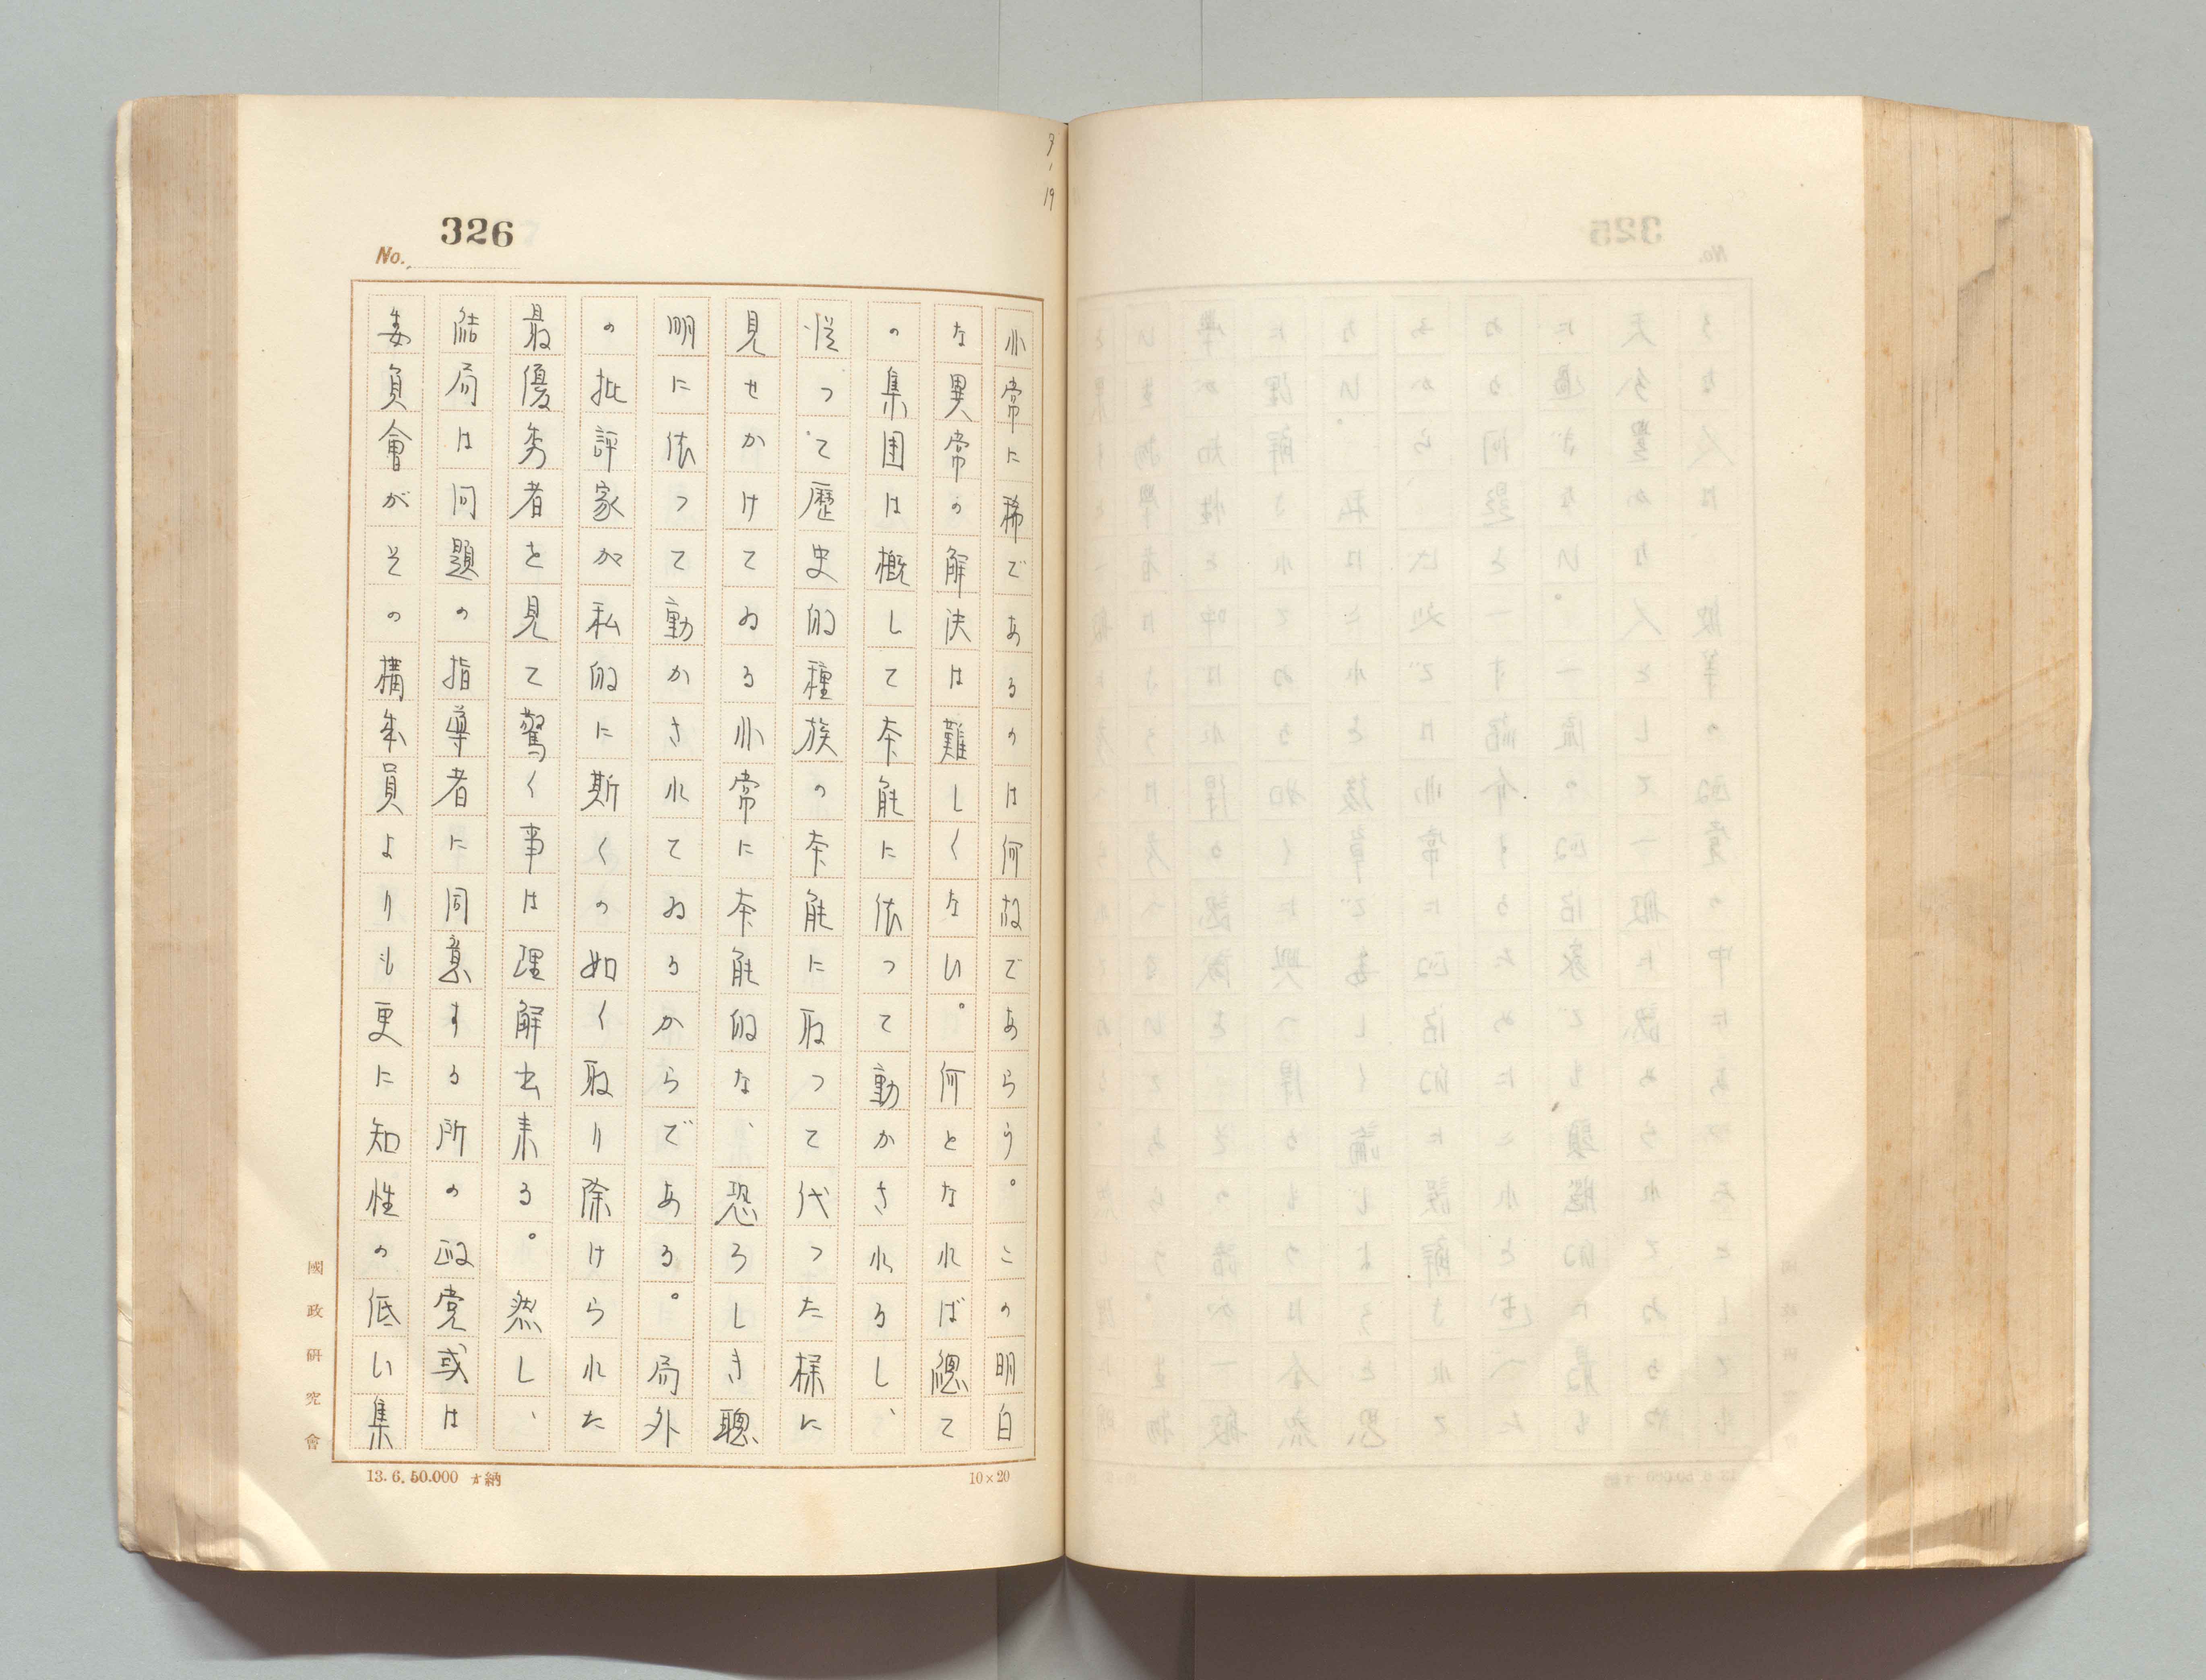 3,19
326
No.
非常に稀であるのは何故であらう。この明白
な異常の解決は難しくない。何となれば總て
の集団は概して本能に依って動かされるし、
従って歴史的種族の本能に取って代った様に
見せかけてゐる非常に本能的な、恐ろしき聰
明に依って動かされてゐるからである。局外
の批評家が私的に斯くの如く取り除けられた
最優秀者を見て驚く事は理解出来る。然し、
結局は问題の指導者に同意する所の政党或は
委員會がその構成員よりも更に知性の低い集
國政研究會
13.6.50.000 納
10×20